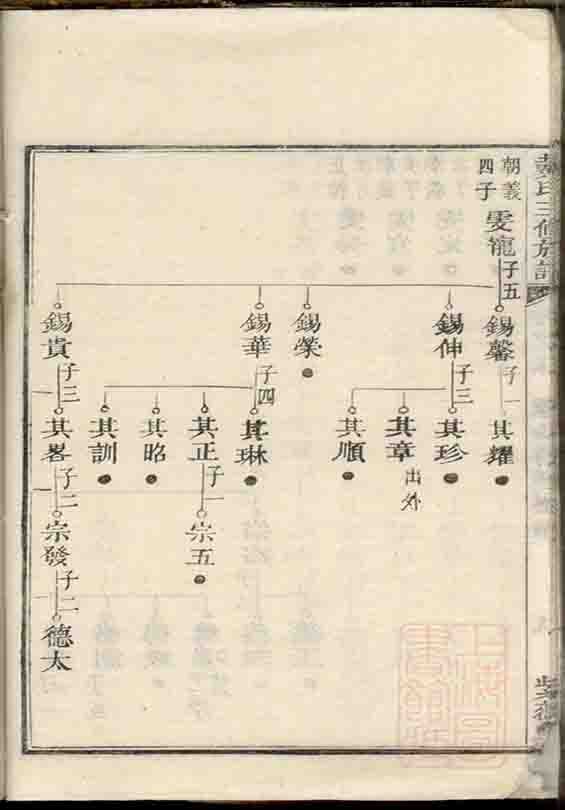 朝義
四子
雯寵
子五
錫馨
子一
其耀
錫伸
子三
其珍
其章
出外
其順
錫榮
錫華
子四
其琳
其正
子一
宗五
其昭
其訓
錫貴
子三
其畧
子二
宗發
子二
德太
氏三修族譜